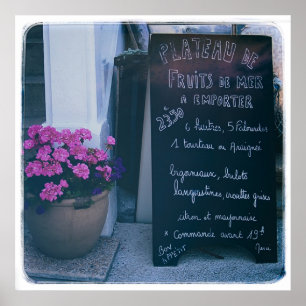 PLATEAU DE
FRUITS DE MER
A EMPORTER
23,50
6 huitres, 5 Palourdes
1 tourteau ou Araignée
bigorneaux, bulots
langoustines, crevettes grises
citron et mayonnaise
* Commande avant 19h
BON
APPÉTIT